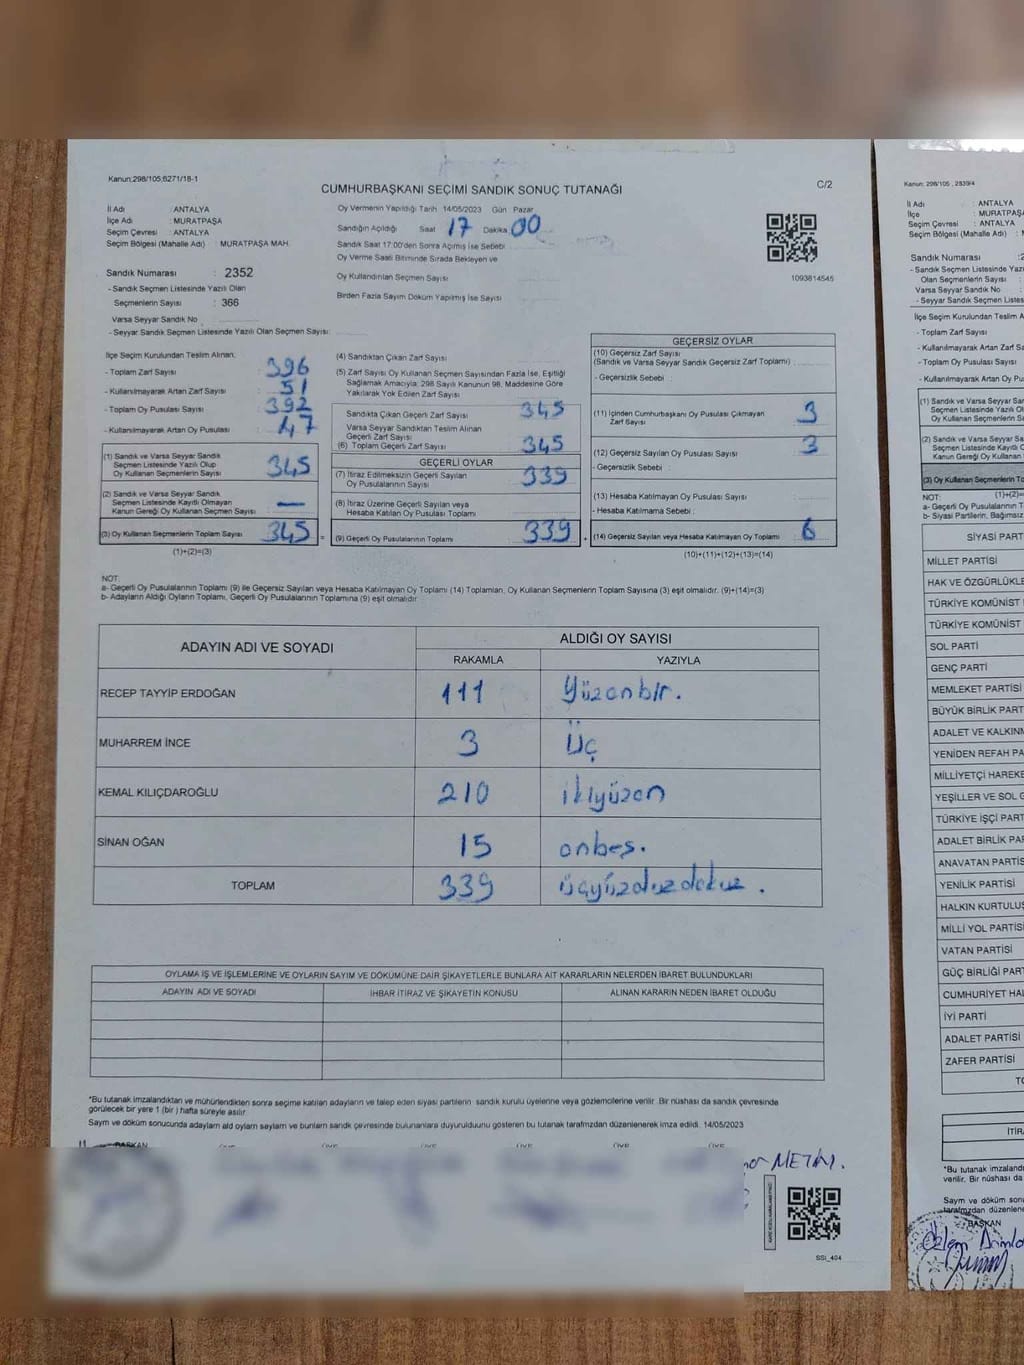 Kanun:298/105;6271/18-1
C/2
CUMHURBAŞKANI SEÇİMİ SANDIK SONUÇ TUTANAĞI
İl Adı : ANTALYA
İlçe Adı : MURATPAŞA
Seçim Çevresi : ANTALYA
Seçim Bölgesi (Mahalle Adı) : MURATPAŞA MAH.
Sandık Numarası : 2352
- Sandık Seçmen Listesinde Yazılı Olan
Seçmenlerin Sayısı : 366
Varsa Seyyar Sandık No
- Seyyar Sandık Seçmen Listesinde Yazılı Olan Seçmen Sayısı:
Oy Vermenin Yapıldığı Tarih 14/05/2023 Gün Pazar
Sandığın Açıldığı Saat 17 Dakika 00
Sandık Saat 17:00'den Sonra Açılmış İse Sebebi
Oy Verme Saati Bitiminde Sırada Bekleyen ve
Oy Kullandırılan Seçmen Sayısı
Birden Fazla Sayım Döküm Yapılmış İse Sayısı
1093814545
İlçe Seçim Kurulundan Teslim Alınan:
- Toplam Zarf Sayısı : 396
- Kullanılmayarak Artan Zarf Sayısı : 51
- Toplam Oy Pusulası Sayısı : 392
- Kullanılmayarak Artan Oy Pusulası : 47
(1) Sandık ve Varsa Seyyar Sandık
Seçmen Listesinde Yazılı Olup
Oy Kullanan Seçmenlerin Sayısı : 345
(2) Sandık ve Varsa Seyyar Sandık
Seçmen Listesinde Kayıtlı Olmayan
Kanun Gereği Oy Kullanan Seçmen Sayısı : —
(3) Oy Kullanan Seçmenlerin Toplam Sayısı : 345 =
(1)+(2)=(3)
(4) Sandıktan Çıkan Zarf Sayısı :
(5) Zarf Sayısı Oy Kullanan Seçmen Sayısından Fazla İse, Eşitliği
Sağlamak Amacıyla; 298 Sayılı Kanunun 98. Maddesine Göre
Yakılarak Yok Edilen Zarf Sayısı :
Sandıkta Çıkan Geçerli Zarf Sayısı : 345
Varsa Seyyar Sandıktan Teslim Alınan
Geçerli Zarf Sayısı
(6) Toplam Geçerli Zarf Sayısı : 345
GEÇERLİ OYLAR
(7) İtiraz Edilmeksizin Geçerli Sayılan
Oy Pusulalarının Sayısı : 339
(8) İtiraz Üzerine Geçerli Sayılan veya
Hesaba Katılan Oy Pusulası Toplamı :
(9) Geçerli Oy Pusulalarının Toplamı : 339 +
GEÇERSİZ OYLAR
(10) Geçersiz Zarf Sayısı
(Sandık ve Varsa Seyyar Sandık Geçersiz Zarf Toplamı) :
- Geçersizlik Sebebi :
(11) İçinden Cumhurbaşkanı Oy Pusulası Çıkmayan
Zarf Sayısı : 3
(12) Geçersiz Sayılan Oy Pusulası Sayısı : 3
- Geçersizlik Nedeni :
(13) Hesaba Katılmayan Oy Pusulası Sayısı :
- Hesaba Katılmama Sebebi :
(14) Geçersiz Sayılan veya Hesaba Katılmayan Oy Toplamı : 6
(10)+(11)+(12)+(13)=(14)
NOT:
a- Geçerli Oy Pusulalarının Toplamı (9) ile Geçersiz Sayılan veya Hesaba Katılmayan Oy Toplamı (14) Toplamları, Oy Kullanan Seçmenlerin Toplam Sayısına (3) eşit olmalıdır. (9)+(14)=(3)
b- Adayların Aldığı Oyların Toplamı, Geçerli Oy Pusulalarının Toplamına (9) eşit olmalıdır
ADAYIN ADI VE SOYADI
ALDIĞI OY SAYISI
RAKAMLA YAZIYLA
RECEP TAYYİP ERDOĞAN 111 Yüzonbir.
MUHARREM İNCE 3 Üç
KEMAL KILIÇDAROĞLU 210 ikiyüzon
SİNAN OĞAN 15 onbeş.
TOPLAM 339 üçyüzotuzdokuz.
OYLAMA İŞ VE İŞLEMLERİNE VE OYLARIN SAYIM VE DÖKÜMÜNE DAİR ŞİKAYETLERLE BUNLARA AİT KARARLARIN NELERDEN İBARET BULUNDUKLARI
ADAYIN ADI VE SOYADI İHBAR İTİRAZ VE ŞİKAYETİN KONUSU ALINAN KARARIN NEDEN İBARET OLDUĞU
*Bu tutanak imzalandıktan ve mühürlendikten sonra seçime katılan adayların ve talep eden siyasi partilerin sandık kurulu üyelerine veya gözlemcilerine verilir. Bir nüshası da sandık çevresinde
görülecek bir yere 1 (bir) hafta süreyle asılır.
Sayım ve döküm sonucunda adayların aldığı oyların sayımı ve bunların sandık çevresinde bulunanlara duyurulduğunu gösteren bu tutanak tarafımızdan düzenlenerek imza edildi. 14/05/2023
BAŞKAN ÜYE ÜYE ÜYE ÜYE ÜYE
METİN.
SSI_404
Kanun: 298/105 , 2839/4
İl Adı : ANTALYA
İlçe : MURATPAŞA
Seçim Çevresi : ANTALYA
Seçim Bölgesi (Mahalle Adı) : M
Sandık Numarası :2
- Sandık Seçmen Listesinde Yazılı
Olan Seçmenlerin Sayısı :
Varsa Seyyar Sandık No :
- Seyyar Sandık Seçmen Listes
İlçe Seçim Kurulundan Teslim A
- Toplam Zarf Sayısı
- Kullanılmayarak Artan Zarf Sa
- Toplam Oy Pusulası Sayısı
- Kullanılmayarak Artan Oy Pu
(1) Sandık ve Varsa Seyyar Sandık
Seçmen Listesinde Yazılı Olu
Oy Kullanan Seçmenlerin Sayı
(2) Sandık ve Varsa Seyyar Sandık
Seçmen Listesinde Kayıtlı O
Kanun Gereği Oy Kullanan
(3) Oy Kullanan Seçmenlerin To
NOT: (1)+(2)=
a- Geçerli Oy Pusulalarının T
b- Siyasi Partilerin, Bağımsız
SİYASİ PART
MİLLET PARTİSİ
HAK VE ÖZGÜRLÜKLE
TÜRKİYE KOMÜNİST
TÜRKİYE KOMÜNİST
SOL PARTİ
GENÇ PARTİ
MEMLEKET PARTİSİ
BÜYÜK BİRLİK PART
ADALET VE KALKINM
YENİDEN REFAH PA
MİLLİYETÇİ HAREKE
YEŞİLLER VE SOL G
TÜRKİYE İŞÇİ PART
ADALET BİRLİK PAR
ANAVATAN PARTİSİ
YENİLİK PARTİSİ
HALKIN KURTULUŞ
MİLLİ YOL PARTİSİ
VATAN PARTİSİ
GÜÇ BİRLİĞİ PART
CUMHURİYET HAL
İYİ PARTİ
ADALET PARTİSİ
ZAFER PARTİSİ
TO
İTİR
*Bu tutanak imzalandı
verilir. Bir nüshası da
Sayım ve döküm son
tarafımızdan düzenlene
BAŞKAN